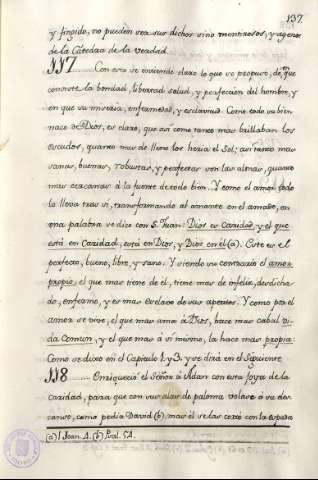 137.
y fingido, no pueden ser sus dichos sino mentirosos, y agenos
de la Cátedra de la verdad.
117 Con esto se entiende claro lo que se propuso, de en qe
consiste la bondad, libertad salud, y perfeccion del hombre, y
en que su miseria, enfermedad, y esclavitud. Como todo su bien
nace de Dios, es claro, que asi como tanto mas brillaban los
escudos, quanto mas de lleno los heria el Sol; asi tanto mas
sanas, buenas, robustas, y perfectas son las almas, quanto
mas cercanas á la fuente de todo bien. Y como el amor todo
lo lleva tras sí, transformando al amante en el amado, en
una palabra se dice con S. Juan: Dios es Caridad, y el que
está en Caridad, está en Dios, y Dios en él (a). Este es el
perfecto, bueno, libre, y sano. Y siendo su contrario el amor
propio, el que mas tiene de él, tiene mas de infeliz, desdicha-
do, enfermo, y es mas Esclavo de sus apetitos. Y como por el
amor se vive, el que mas ama á Dios, hace mas cabal vi-
da Comun, y el que mas á sí mismo, la hace mas propia.
Como se dixo en el Capitulo 1. y 3. y se dirá en el siguiente.
118 Enriqueció el Señor á Adan con esta Joya de la
caridad, para que con sus alas de paloma volase á su des-
canso, como pedia David (b). mas él se las cortó con la espada
(a) I Joan. 4. (b) Psal. 54.